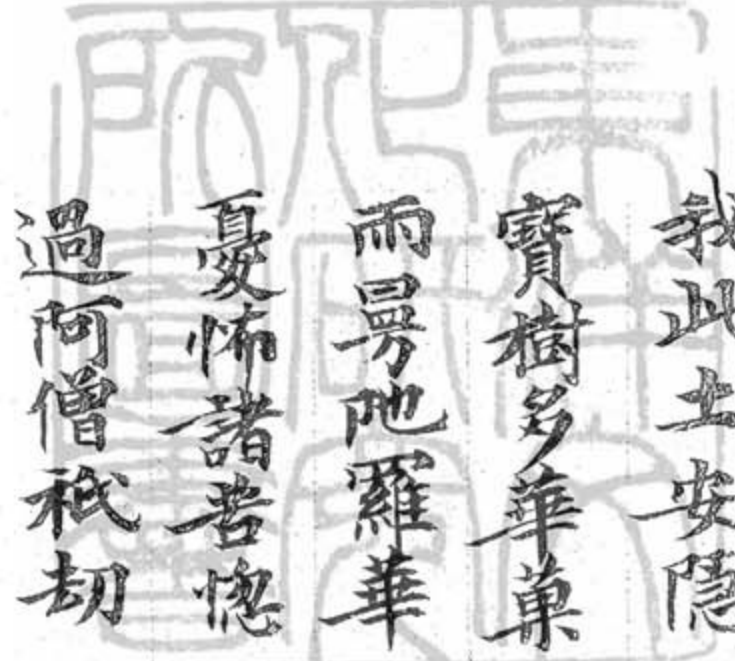 我此土安隱
寶樹多華菓
雨曼陁羅華
憂怖諸苦惱
過阿僧祇劫